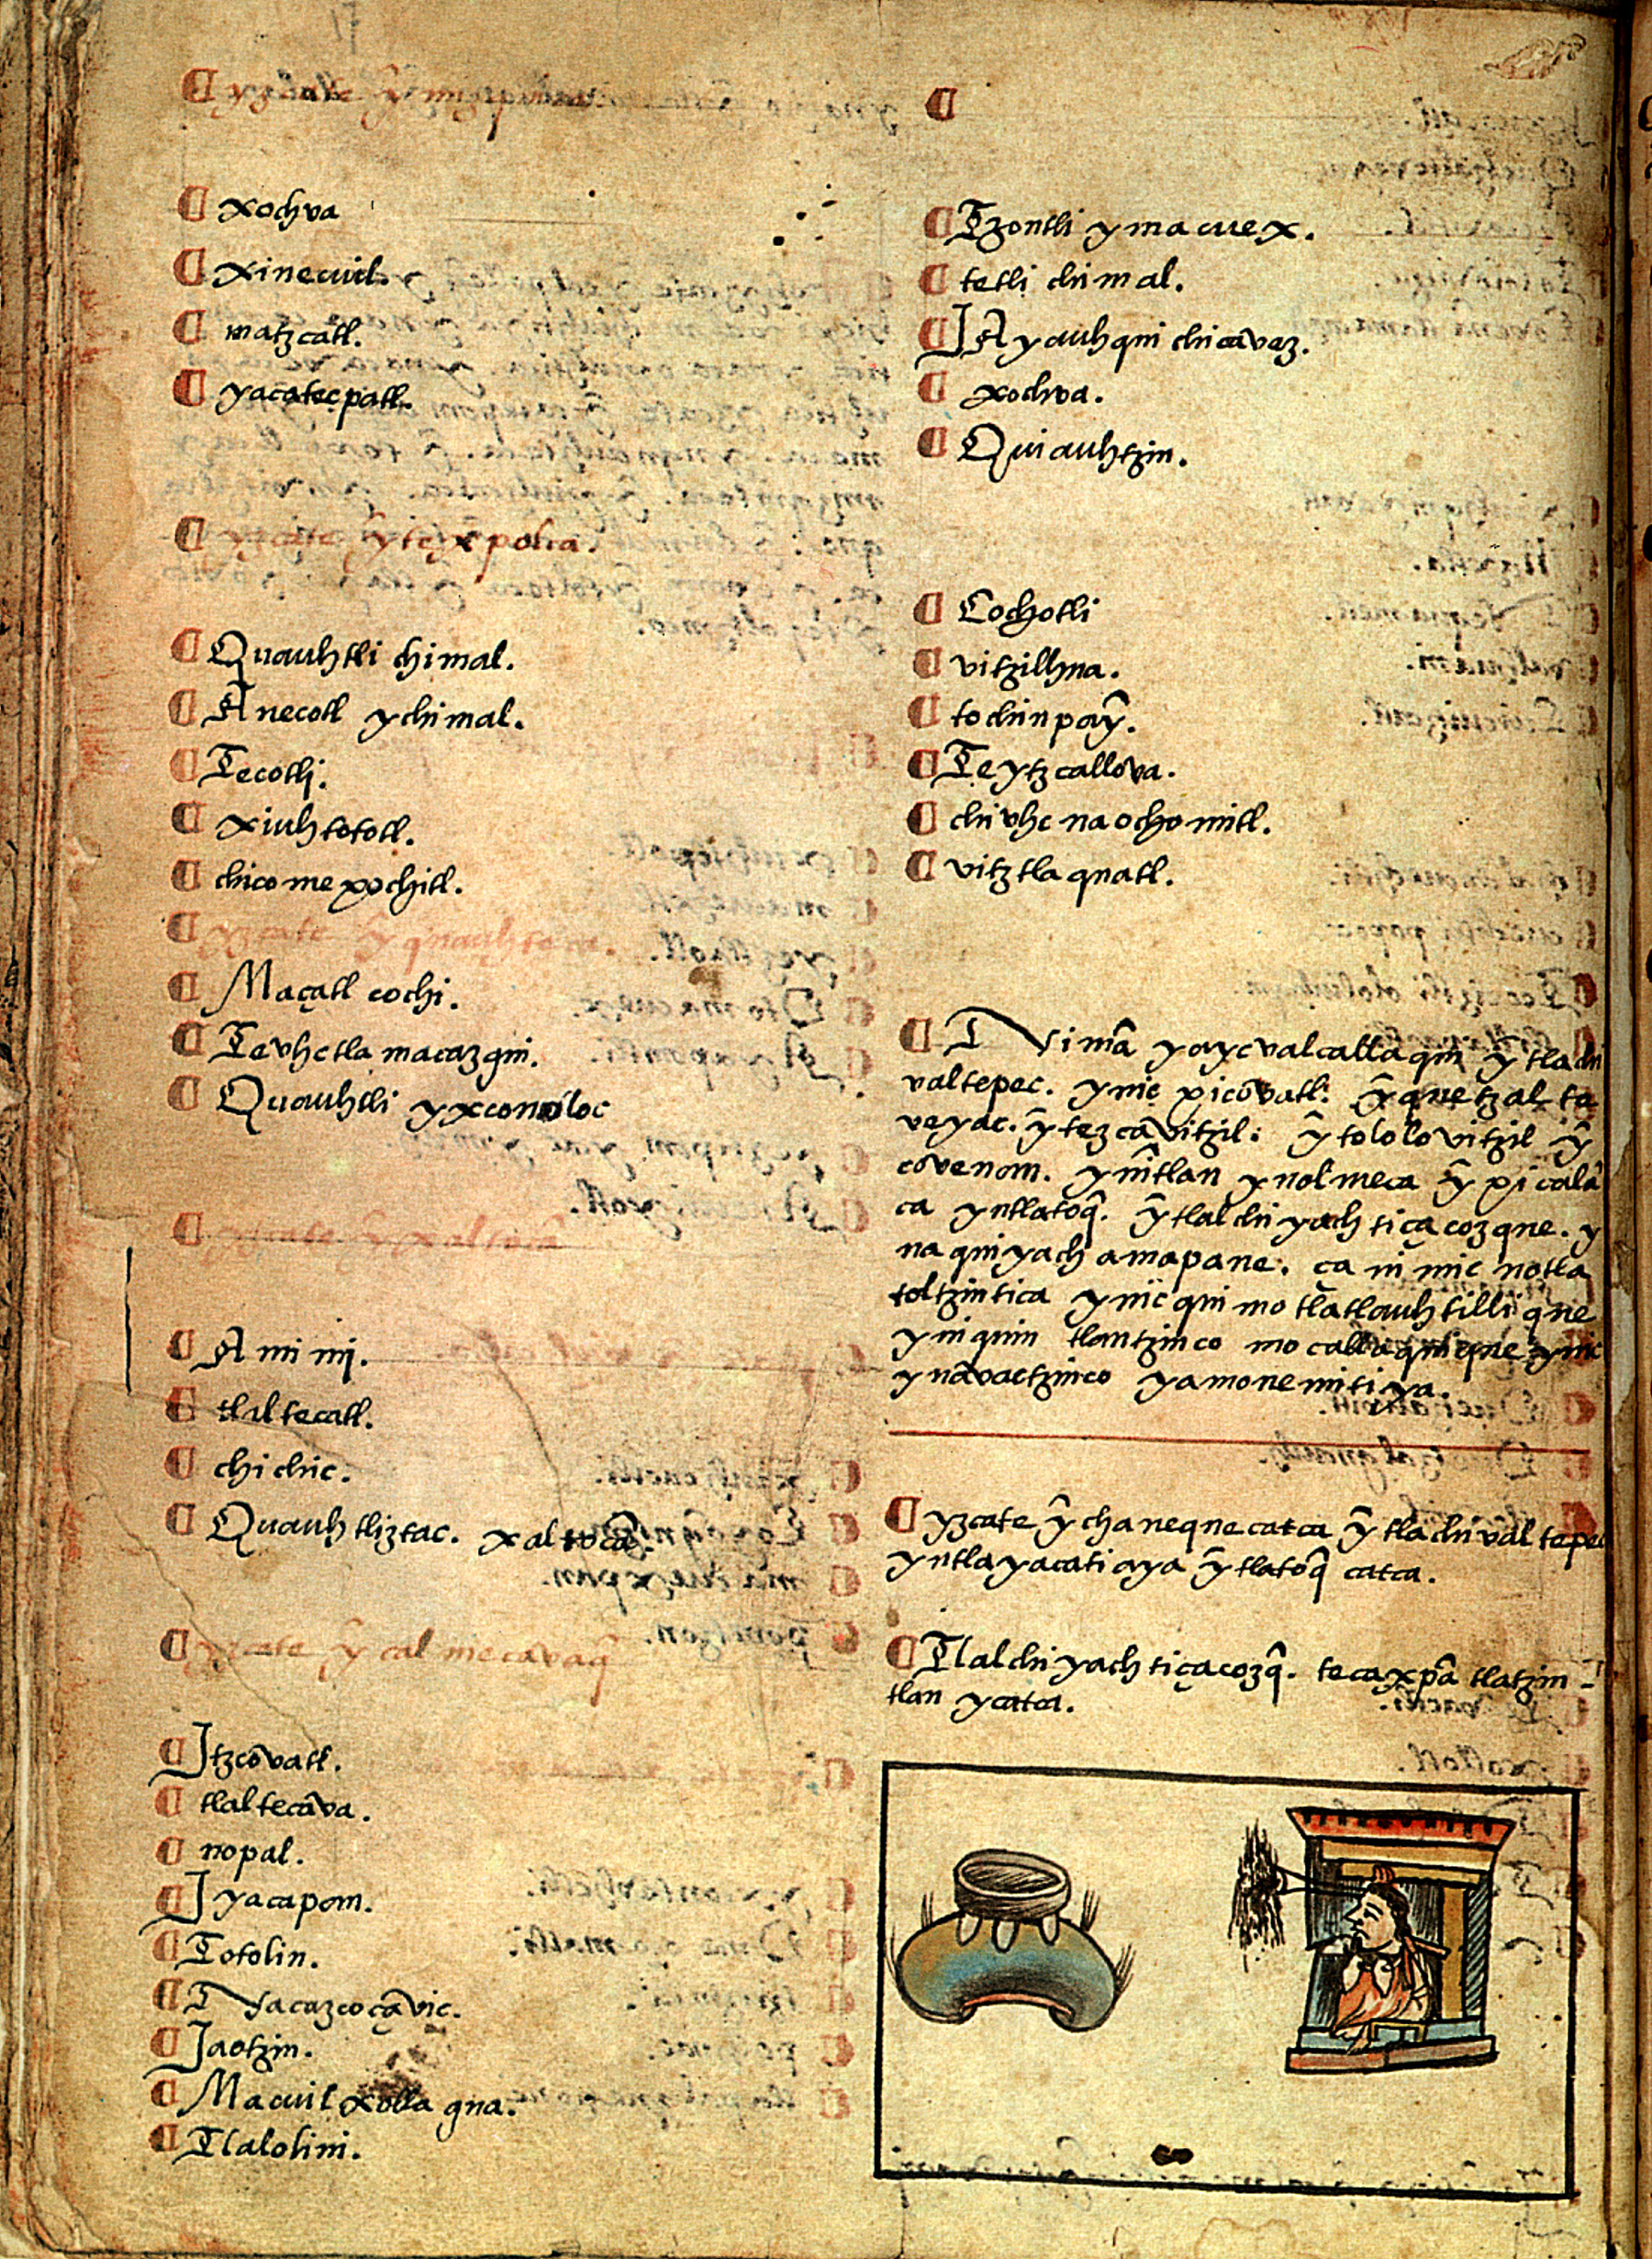 yzcate ỹ
xochva
xinecuil.
matzcatl.
yacatecpatl.
yzcate ỹtexpolca.
Quauhtli chimal.
Anecotl ychimal.
Tecotli.
xiuhtototl.
chicomexochitl.
yzcate ỹ quauhteca.
Maçatl cochi.
Tevhctlamacazqui.
Quauhtli yxconoloc
yzcate ỹ xaltocã
Amimj.
tliltecatl.
chichic.
Quauhtliztac. xaltocã.
yzcate ỹ calmecavaq̃
Jtzcõvatl.
tlaltecãva.
nopal.
Jyacapom.
Totolin.
Nacazcoçãvic.
Jaotzin.
Macuilxolla qua.
Tlalolini.
Tzontli ymacuex.
tetli chimal.
JAyauhqui chicãvaz.
xochva.
Quiauhtzin.
Cochotli
vitzilhua.
tochinpaỹ.
Teytzcallova.
chivhcnaochomitl.
vitztlaquatl.
Nimã yayc valcallaqui ỹ tlachi
valtepec. ynic xicõvatl. ỹ quetzal te
veyac. ỹ tezcãvitzil: ỹ tololovitzil ỹ
cõvenom. ymĩtlan ynolmeca ỹ xicalã
ca yntlatoq̃. ỹ tlalchiyach tiçacozque. y
naquiyach amapane. ça in inic notla
toltzintica ynic quimotlatlauhtillique
yniquin tlantzinco mocallaquique ynic
ynãvactzinco yamonemitiya.
yzcate ỹ chanequecatca ỹ tlachivaltepec
yntlayacatiaya ỹ tlatoq̃ catca.
Tlalchiyach tiçacozq̃. tecaxpã tlatzin-
tlan ycatca.